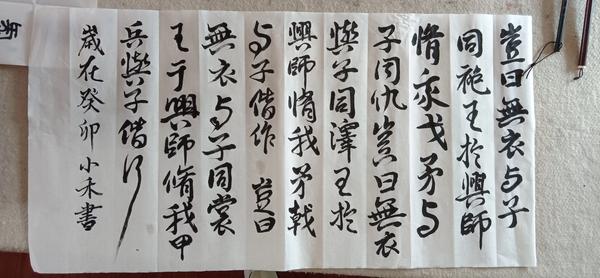 豈曰無衣与子
同袍王於興師
脩我戈矛与
子同仇豈曰無衣
與子同澤王於
興師脩我矛戟
与子偕作豈曰
無衣与子同裳
王于興師脩我甲
兵與子偕行
歲在癸卯小禾書